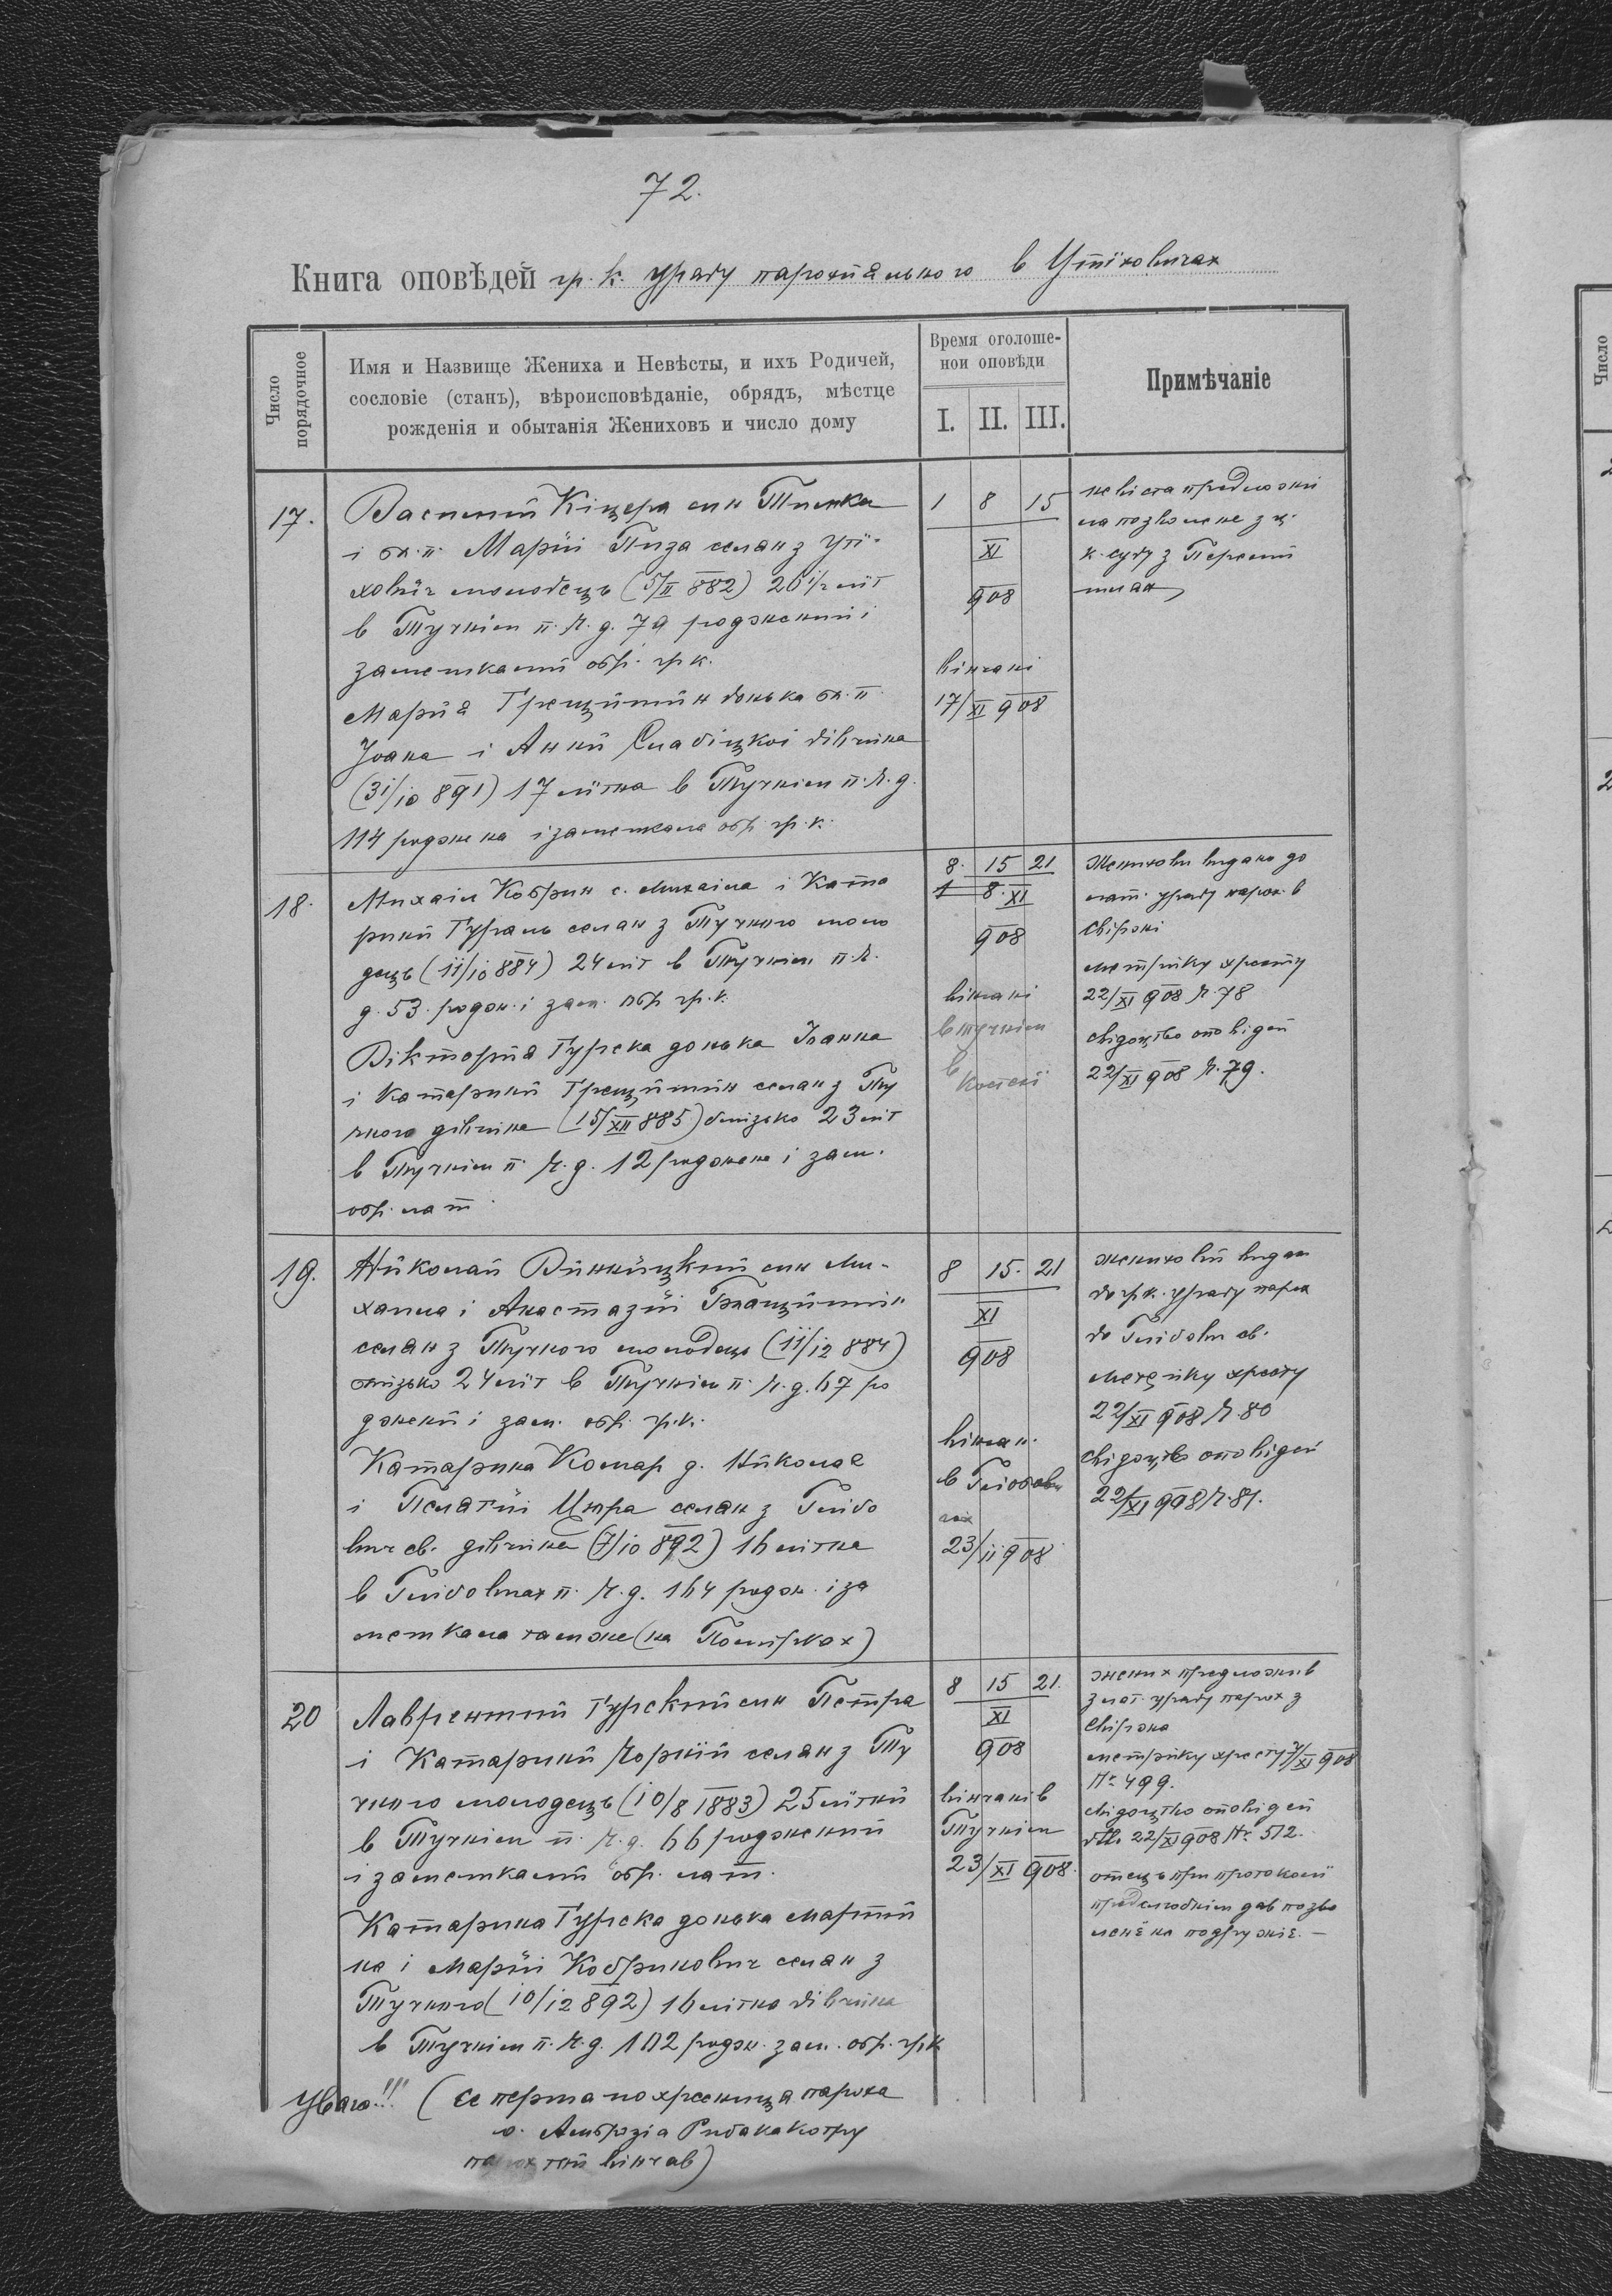 72.
Книга оповѣдей гр. к. уряду парохіяльного в Утіховичах
Число порядочное
Имя и Назвище Жениха и Невѣсты, и ихъ Родичей,
сословіе (станъ), вѣроисповѣданіе, обрядъ, мѣстце
рожденія и обытанія Жениховъ и число дому
Время оголоше-
нои оповѣди
I. II. III.
Примѣчаніе
17.
Василий Кіцера син Тимка
і бл. п. Марії Пиза селан з Уті-
ховіч молодець (5/II 882) 26 1/2 літ
в Тучнім п. ч. д. 79 роджений і
замешкалий обр. гр. к.
Марія Грещишин донька бл. п.
Јоана і Анни Слабіцкоі дівчина
(31/10 891) 17 літна в Тучнім п. ч. д.
114 роджена і замешкала обр. гр. к.
1 8 15
XI
908
вінчані
17/XI 908
невіста предложи
ла позволене з ц.
к. суду з Переми
шлян
18.
Михаіл Кобрин с. Михаіла і Ката
рини Гураль селан з Тучного моло
децъ (11/10 884) 24 літ в Тучнім п. ч.
д. 53. родж. і зам. обр гр. к.
Вікторія Гурска донька Іоанна
і Катерини Грещишин селан з Ту
чного дівчина (15/XII 885) близько 23 літ
в Тучнім п. ч. д. 12 роджена і зам.
обр. лат.
8. 15 21
1 8. XI
908
вінчані
в тучнім
в костелі
Женихови видано до
лат. уряду парох. в
Свіржі
метрику хресту
22/XI 908 ч. 78
свідоцтво оповідей
22/XI 908 ч. 79.
19.
Николай Винницкий син Ми-
хаила і Анастазії
селан з Тучного молодець (11/12 884)
близько 24 літ в Тучнім п. ч. д. 67 ро
джений і зам. обр. гр. к.
Катарина Комар д. Николая
і Пелагії Цюра селан з Глібо
вич св. дівчина (7/10 892) 16 літна
в Глібовичах п. ч. д. 164 родж. і за
мешкала также (на Помірках)
8 15. 21
XI
908
вінчан.
в Глібови
чах
23/11 908
женихови видан
до гр. к. уряду парох
до Глібович св.
метрику хресту
22/XI 908 ч. 80
свідоцтво оповідей
22/XI 908 ч. 81.
20
Лаврентий Гурский син Петра
і Катарини Чорній селан з Ту
чного молодець (10/8 1883) 25 літний
в Тучнім п. ч. д. 66 роджений
і замешкалий обр. лат.
Катарина Гурска донька Марти
на і Марії Кобринович селан з
Тучного (10/12 892) 16 літна дівчина
в Тучнім п. ч. д. 102 родж. зам. обр. гр. к
8 15 21.
XI
908
вінчані в
Тучнім
23/XI 908.
жених предложив
з лат. уряду парох з
Свіржа
метрику хресту 7/XI 908
Nr. 499.
свідоцтво оповідей
dtto 22/XI 908 Nr. 512.
отець при протоколі
предслюбнім дав позво
ленє на подружіє. —
Увага!!! (се перша похресниця пароха
о. Амброзія Рибака котру
парохтой вінчав)